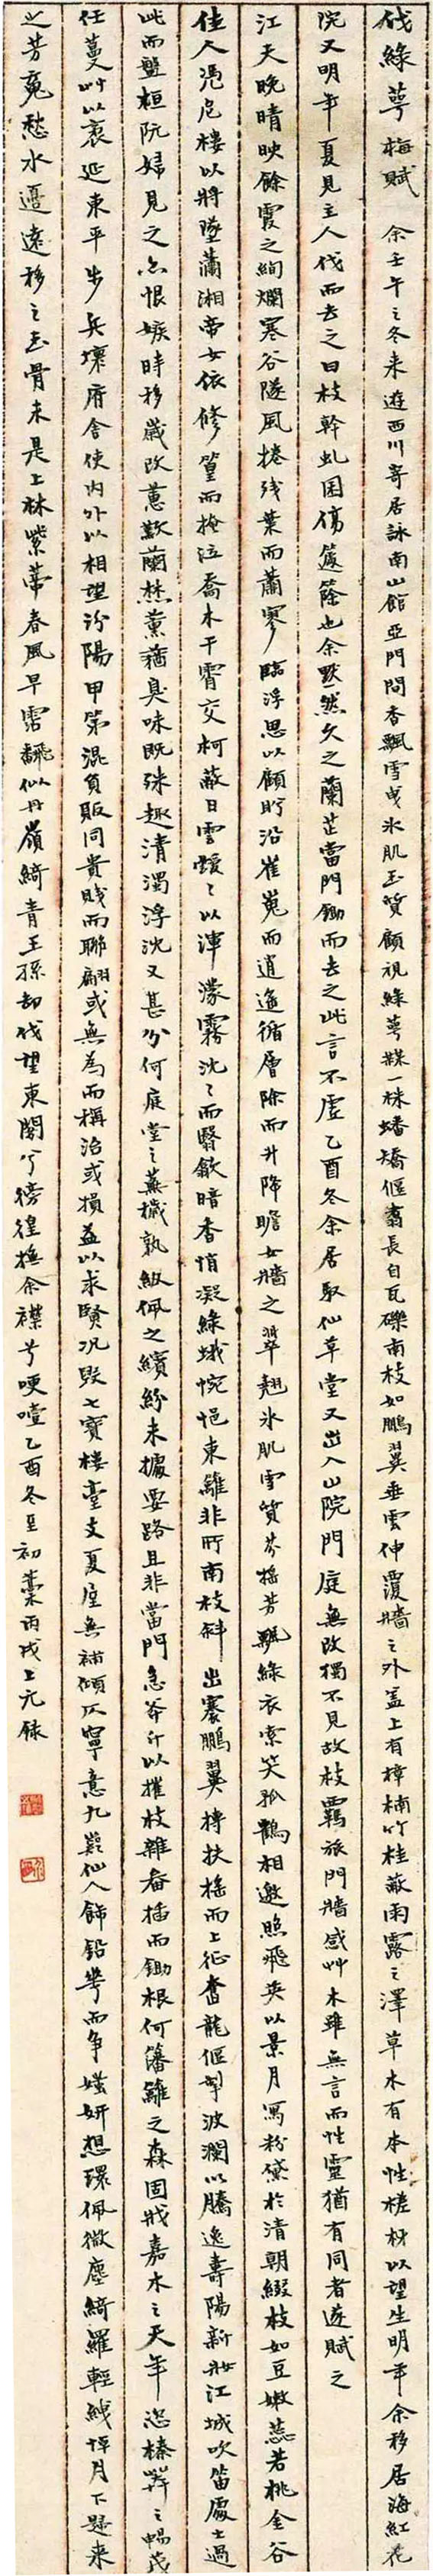 伐綠萼梅賦　余壬午之冬来遊西川寄居詠南山館亞門問香飄雪曳氷肌玉質顧視綠萼梅一株蟠矯偃蹇長自瓦礫南枝如鵬翼垂雲伸覆牆之外蓋上有樟楠竹桂蔽雨露之澤草木有本性槎枒以望生明年余移居海紅花
院又明年夏見主人伐而去之曰枝幹虬困傷籧篨也余默然久之蘭芷當門鋤而去之此言不虛乙酉冬余居取仙草堂又出入山院門庭無改獨不見故枝羈旅門牆感艸木雖無言而性靈猶有同者遂賦之
江天晚晴映餘霞之絢斕寒谷隧風捲残葉而蕭寥臨浮思以顧盻沿崔嵬而逍遙循層除而升降瞻女牆之翠翹氷肌雪質芬搖芳飄綠衣索笑孤鶴相邀照飛英以景月寫粉黛於清朝綴枝如豆嫩蕊若桃金谷
佳人憑危樓以將墜瀟湘帝女依修篁而掩泣喬木干霄交柯蔽日雲靉靉以渾濛霧沈沈而翳歙暗香悄凝綠蛾惋悒東籬非所南枝斜出褰鵬翼摶扶搖而上征奮龍偃掣波瀾以騰逸壽陽新妝江城吹笛處士過
此而盤桓阮婦見之亦恨嫉時移歲改蕙歎蘭愁薰蕕臭味既殊趣清濁浮沈又甚分何庭堂之蕪穢孰紉佩之繽紛未據要路且非當門急斧斤以摧枝雜畚插而鋤根何籓籬之森固戕嘉木之天年恣榛莽之暢茂
任蔓艸以衺延東平步兵壞府舍使內外以相望汾陽甲第混負販同貴賤而聯翩或無為而稱治或損益以求賢況毀七寶樓臺支夏屋無補傾仄寧意九嶷仙人飾鉛華而争媸妍想環佩微塵綺羅輕綫怦月下歸来
之芳蒐愁水邊遠移之玉骨未是上林紫蒂春風早霑翻似丹嶺綺青王孫却伐望東閣兮徬徨撫余襟兮哽噎乙酉冬至初藁丙戌上元録